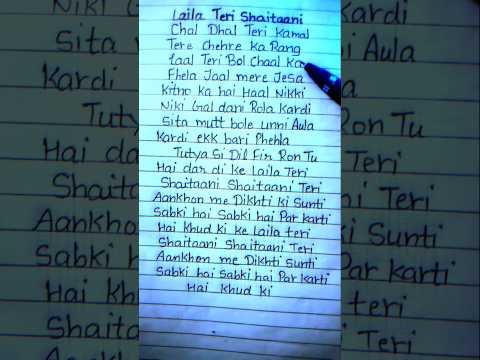 Laila Teri Shaitaani
Chal Dhal Teri Kamal
Tere Chehre Ka Rang
Laal Teri Bol Chaal Ka
Fhela Jaal mere Jesa
Kitno Ka hai Haal Nikki
Niki Gal dani Rola Kardi
Sita mutt bole unni Aula
Kardi ekk bari Phehla
Tutya Si Dil Fir Ron Tu
Hai dar di Ke Laila Teri
Shaitaani Shaitaani Teri
Aankhon me Dikhti Ki Sunti
Sabki hai Sabki hai Par Karti
Hai Khud Ki Ke Laila teri
Shaitaani Shaitaani Teri
Aankhon me Dikhti Sunti
Sabki hai Sabki hai Par Karti
Hai Khud Ki